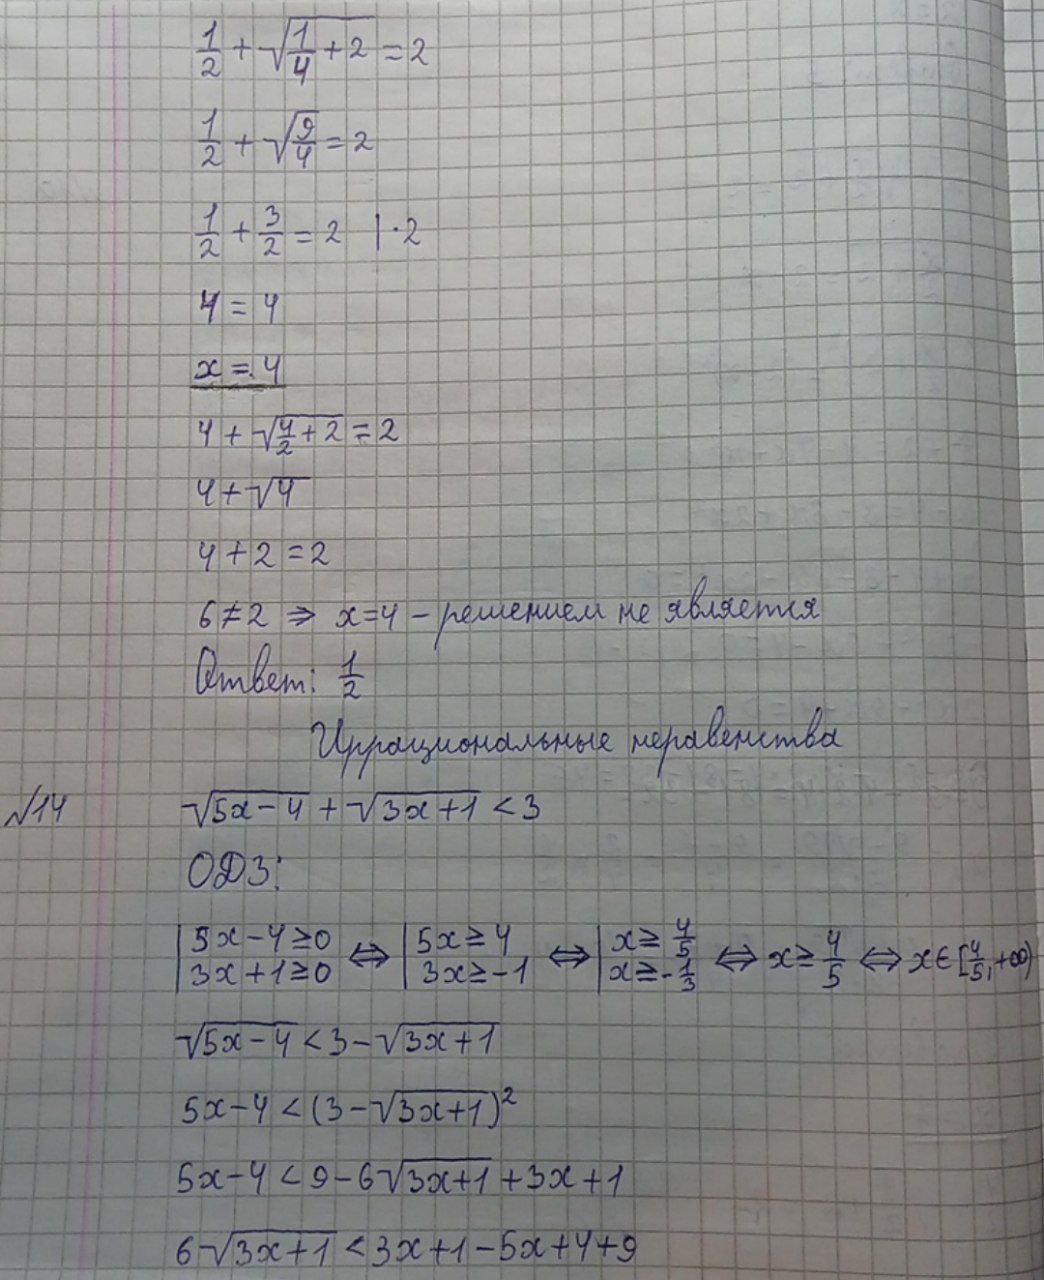 1/2 + √(1/4 + 2) = 2
1/2 + √(9/4) = 2
1/2 + 3/2 = 2 | · 2
4 = 4
x = 4
4 + √(4/2 + 2) = 2
4 + √4
4 + 2 = 2
6 ≠ 2 ⇒ x = 4 – решением не является
Ответ: 1/2
Иррациональные неравенства
№14 √(5x – 4) + √(3x + 1) < 3
ОДЗ:
| 5x – 4 ≥ 0 ⇔ | 5x ≥ 4 ⇔ | x ≥ 4/5 ⇔ x ≥ 4/5 ⇔ x ∈ [4/5, +∞)
| 3x + 1 ≥ 0 | 3x ≥ –1 | x ≥ –1/3
√(5x – 4) < 3 – √(3x + 1)
5x – 4 < (3 – √(3x + 1))²
5x – 4 < 9 – 6√(3x + 1) + 3x + 1
6√(3x + 1) < 3x + 1 – 5x + 4 + 9